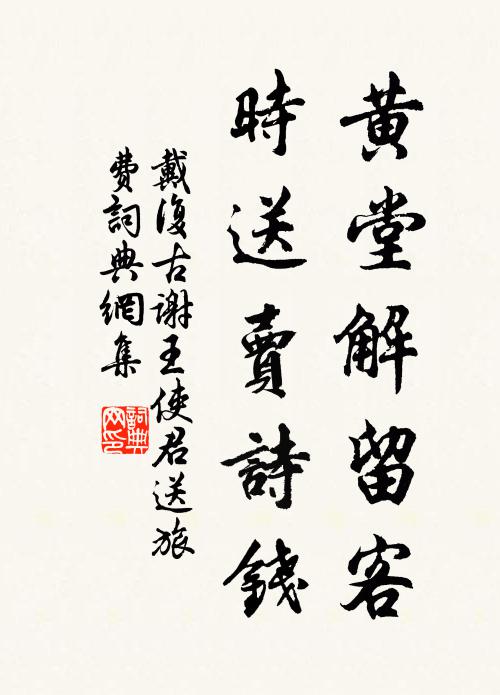 黄堂解留客
時送賣詩錢
戴復古謝王使君送旅
費詞典網集
詞典
网印